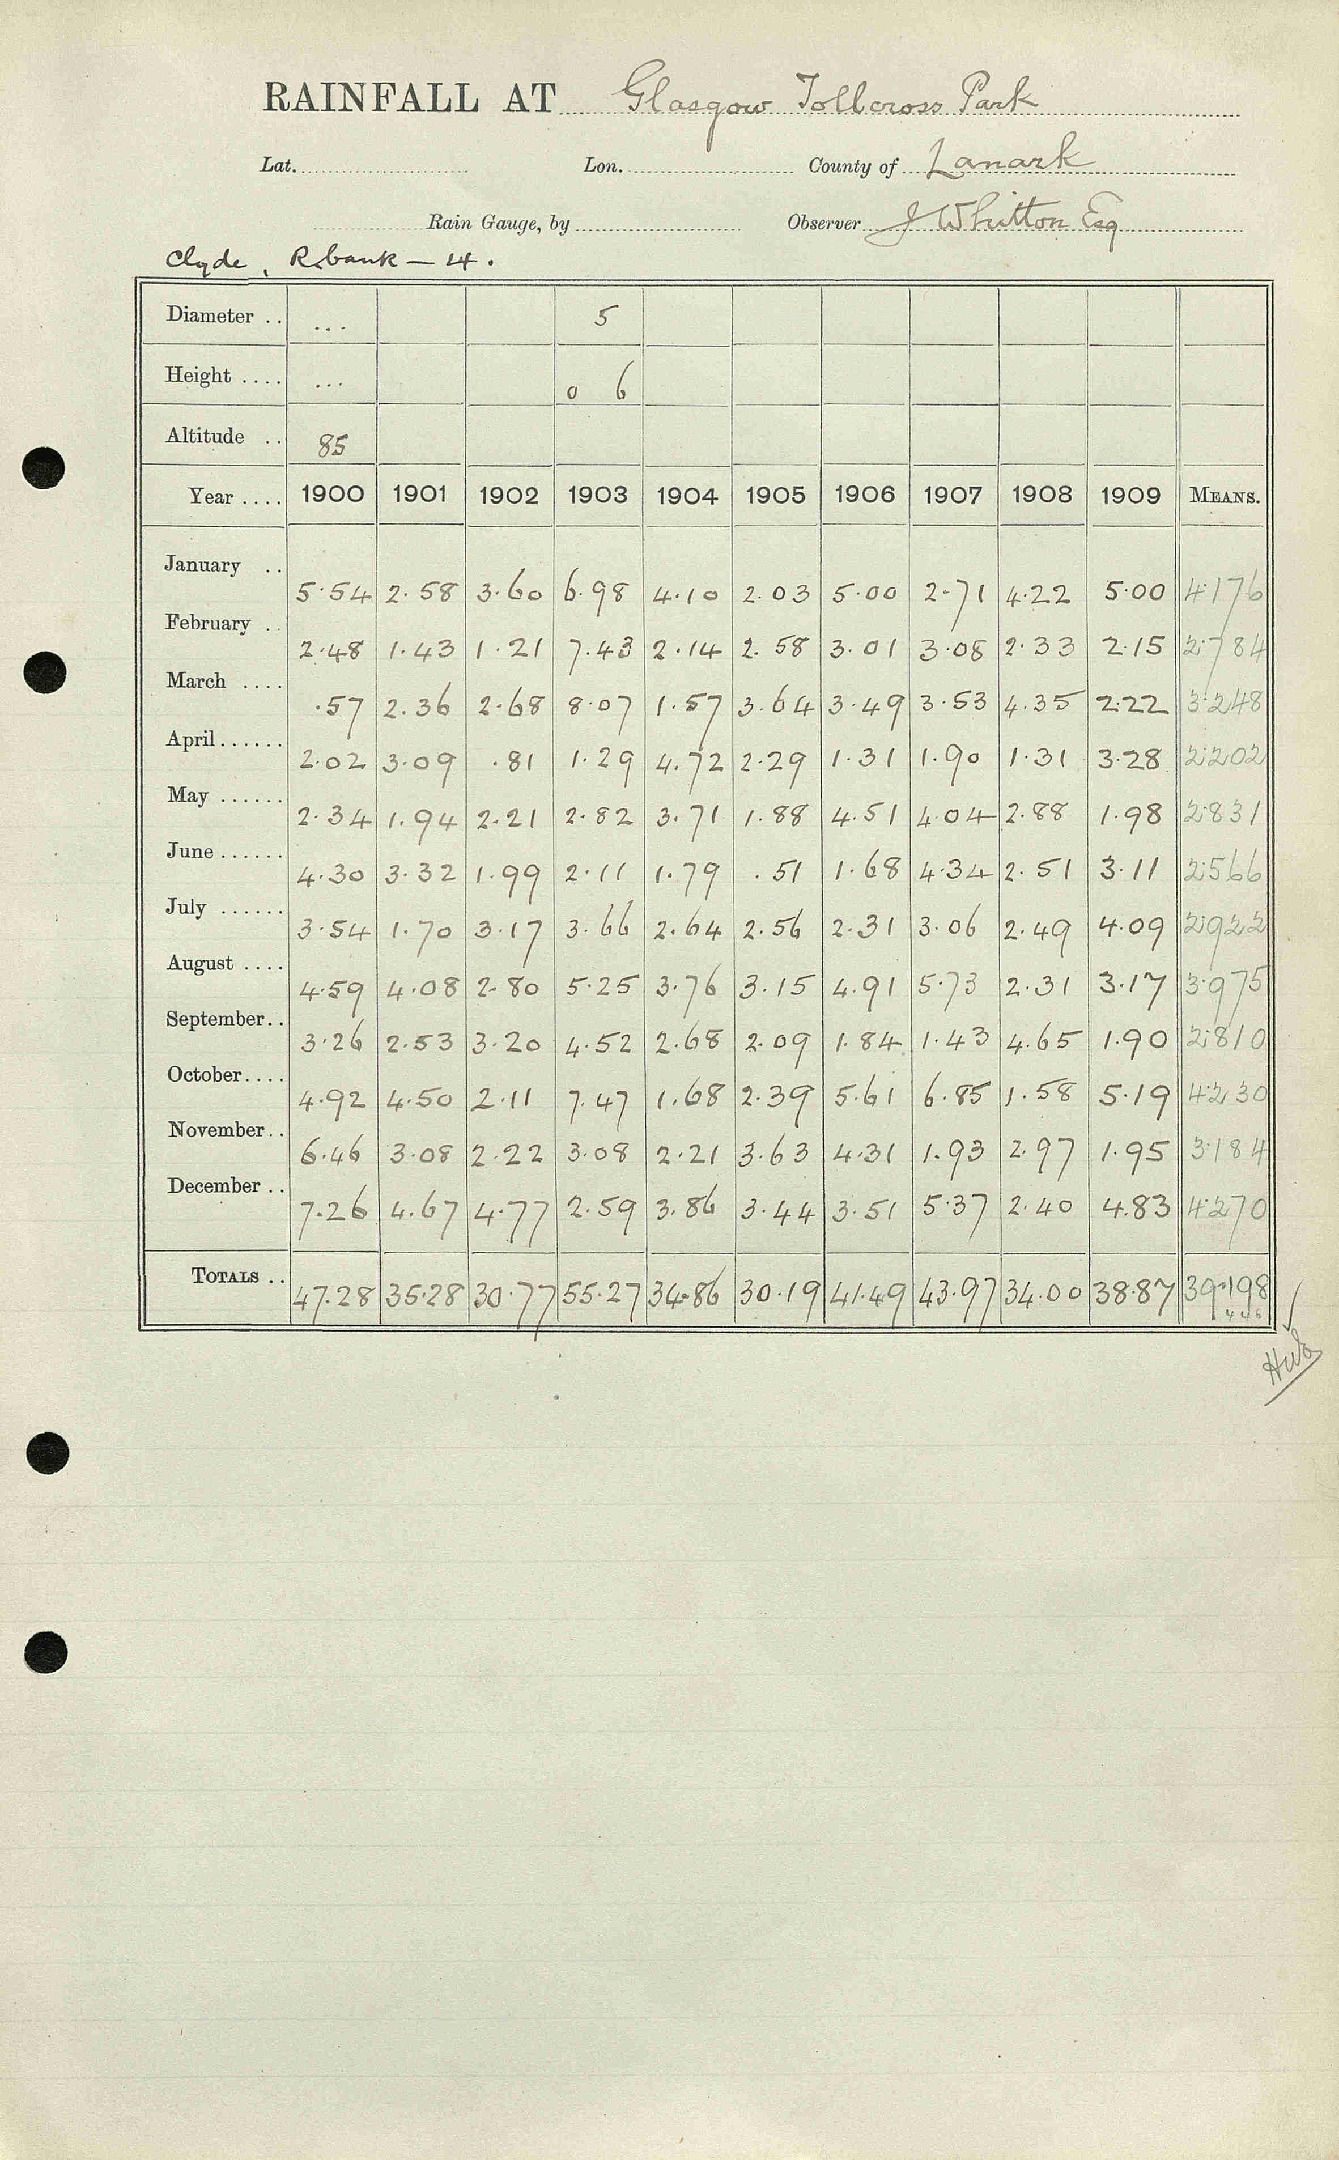 RAINFALL AT Glasgow Tollcross Park
Lat. Lon. County of Lanark
Rain Gauge, by Observer J Whitton Esq
Clyde, R.bank — 4.
Diameter .. ... 5
Height .... ... 0 6
Altitude .. 85
Year .... 1900 1901 1902 1903 1904 1905 1906 1907 1908 1909 MEANS.
January .. 5.54 2.58 3.60 6.98 4.10 2.03 5.00 2.71 4.22 5.00 4.176
February .. 2.48 1.43 1.21 7.43 2.14 2.58 3.01 3.08 2.33 2.15 2.784
March .... .57 2.36 2.68 8.07 1.57 3.64 3.49 3.53 4.35 2.22 3.248
April...... 2.02 3.09 .81 1.29 4.72 2.29 1.31 1.90 1.31 3.28 2.202
May ...... 2.34 1.94 2.21 2.82 3.71 1.88 4.51 4.04 2.88 1.98 2.831
June ...... 4.30 3.32 1.99 2.11 1.79 .51 1.68 4.34 2.51 3.11 2.566
July ...... 3.54 1.70 3.17 3.66 2.64 2.56 2.31 3.06 2.49 4.09 2.922
August .... 4.59 4.08 2.80 5.25 3.76 3.15 4.91 5.73 2.31 3.17 3.975
September.. 3.26 2.53 3.20 4.52 2.68 2.09 1.84 1.43 4.65 1.90 2.810
October.... 4.92 4.50 2.11 7.47 1.68 2.39 5.61 6.85 1.58 5.19 4.230
November.. 6.46 3.08 2.22 3.08 2.21 3.63 4.31 1.93 2.97 1.95 3.184
December .. 7.26 4.67 4.77 2.59 3.86 3.44 3.51 5.37 2.40 4.83 4.270
TOTALS .. 47.28 35.28 30.77 55.27 34.86 30.19 41.49 43.97 34.00 38.87 39.198